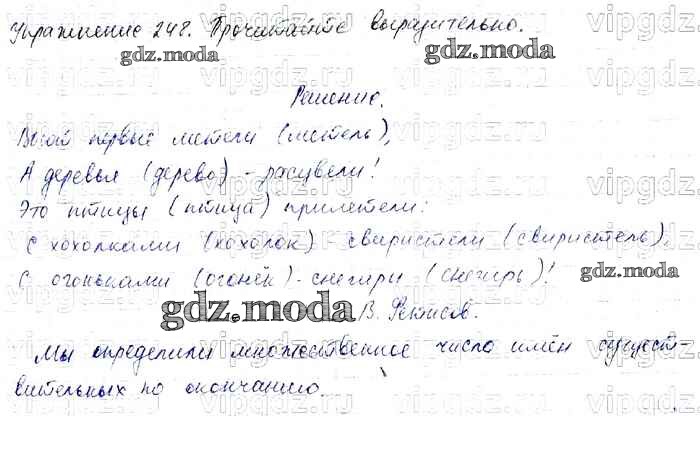 Упражнение 248. Прочитайте выразительно.
Решение.
Воют первые метели (метель),
А деревья (дерево) - расцвели!
Это птицы (птица) прилетели:
С хохолками (хохолок) - свиристели (свиристель),
С огоньками (огонёк) - снегири (снегирь)!
В. Фетисов.
Мы определили множественное число имён сущест-
вительных по окончанию.
gdz.moda
gdz.moda
gdz.moda
gdz.moda
gdz.moda
vipgdz.ru